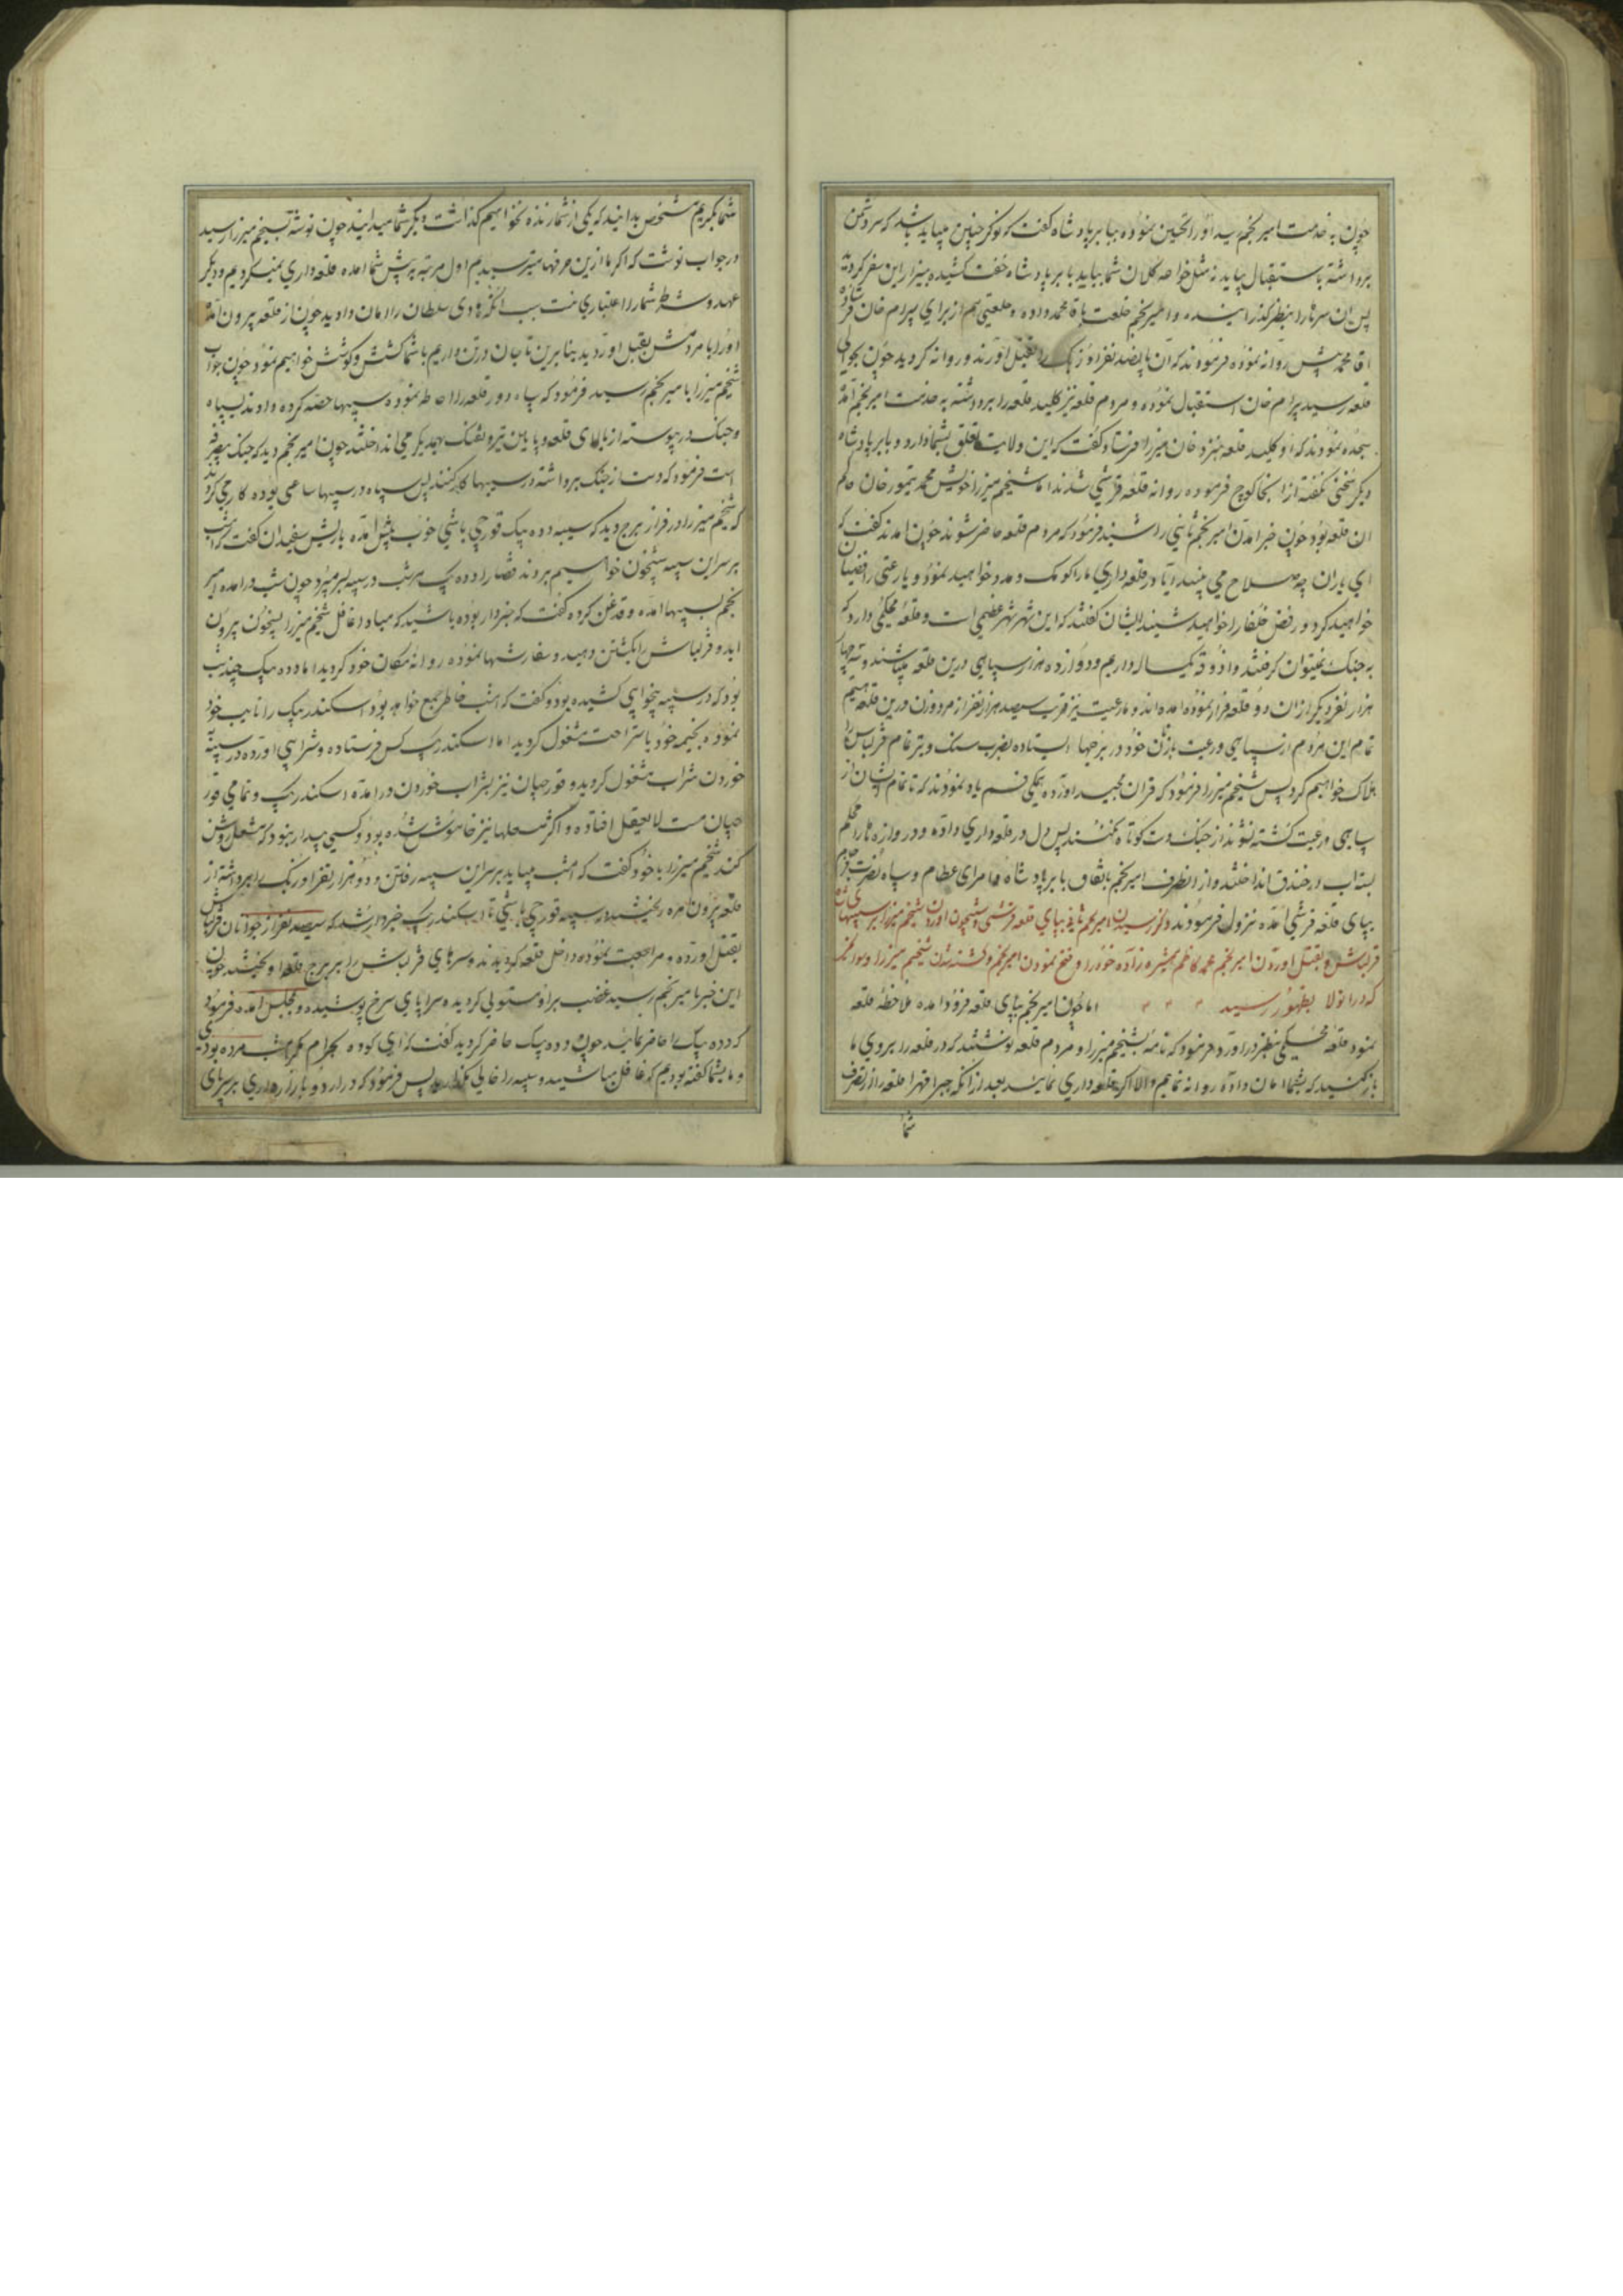 چون به خدمت امیر نجم رسید او را تحسین نموده ببابر پادشاه گفت که نوکر چنین میباید باشد که سر دشمن
برداشته باستقبال بیاید نه مثل خواجه کلان شما بیاید بابر پادشاه خفت کشیده بیزار این سفر گردید
پس آن سرها را بنظر گذرانیده و امیر نجم خلعت باقا محمد داده و خلعتی هم از برای بیرام خان
اقا محمد پیش روانه نموده فرمودند که آن پانصد نفر اوزبک را بقتل آورند و روانه گردید چون بحوالی
قلعه رسید بیرام خان استقبال نموده و مردم قلعه نیز کلید قلعه را برداشته به خدمت امیر نجم آمده
سجده نمودند که او کلید قلعه بنزد خان میرزا فرستاد گفت که این ولایت تعلق بشما دارد و بابر پادشاه
دیگر سخنی نگفته از انجا کوچ فرموده روانه قلعه قرشی شدند اما شیخم میرزا خویش محمد تیمور خان حاکم
ان قلعه بود چون خبر امدن امیر نجم ثانی را شنید فرمود که مردم قلعه حاضر شوند چون امدند گفت که
ای یاران چه صلاح می بینید ایا در قلعه داری ما را کومک و مدد خواهید نمود و یا رعیتی رافضیان
خواهید کرد و رفض خلفا را خواهید شنید ایشان گفتند که این شهر شهر عظیمی است و قلعه محکمی دارد که
به جنگ نمیتوان گرفتند و اذوقه یکساله داریم و دوازده هزار سپاهی درین قلعه میباشند و سه چهار
هزار نفر دیگر ازان دو قلعه فرار نموده امده اند و ما رعیت نیز قریب سیصد هزار نفر از مرد و زن درین قلعه هستیم
تمام این مردم از سپاهی و رعیت با زنان خود در برجها ایستاده بضرب سنگ و تیر تمام قزلباش را
هلاک خواهیم کرد پس شیخم میرزا فرمود که قران مجید اورده همگی قسم یاد نمودند که تا تمام ایشان از
سپاهی و رعیت کشته نشوند از جنگ دست کوتاه نکنند پس دل در قلعه داری داده و دروازه ها را محکم
بسته آب در خندق انداختند و از انطرف امیر نجم باتفاق بابر پادشاه و امرای عظام و سپاه نصرت فرجام
بپای قلعه قرشی آمده نزول فرمودند ذکر رسیدن امیر نجم ثانی بپای قلعه قرشی و شبیخون اوردن شیخم میرزا بر سیبهای
قزلباش و بقتل اوردن امیر نجم محمد کاظم همشیره زاده خود را و فتح نمودن امیر نجم و کشته شدن شیخم میرزا و سوانح
که دران ولا بظهور رسید اما چون امیر نجم بپای قلعه فرود امده ملاحظه قلعه
نمود قلعه محکمی بنظر دراورد فرمود که نامه بشیخم میرزا و مردم قلعه نوشتند که در قلعه را بروی ما
باز کنید که بشما امان داده روانه نماییم والا اگر قلعه داری نمایید بعد از انکه جبرا قهرا قلعه را از تصرف
شما
شما بگیریم مشخص بدانید که یکی از شما را زنده نخواهیم گذاشت دیگر شما میدانید چون نوشته بشیخم میرزا رسید
در جواب نوشت که اگر ما ازین حرفها میترسیدیم اول مرتبه پیش شما امده قلعه داری نمیکردیم و دیگر
عهد و شرط شما را اعتباری نیست بسبب انکه هادی سلطان را امان دادید چون از قلعه بیرون آمد
او را با مردمش بقتل اوردید بنابرین تا جان در تن داریم با شما کشش و کوشش خواهیم نمود چون جواب
شیخم میرزا بامیر نجم رسید فرمود که سپاه دور قلعه را احاطه نموده سیبها حصه کرده دادند بسپاه
و جنگ در پیوسته از بالای قلعه و پایین تیر و تفنگ بهمدیگر می انداختند چون امیر نجم دید که جنگ بیفایده
است فرمود که دست از جنگ برداشته در سیبها کار کنند پس سپاه در سیبها ساعی بوده کار می کردند
که شیخم میرزا در فراز برج دید که سیبه دده بیک قورچی باشی خوب پیش آمده با ریش سفیدان گفت که امشب
بر سر این سیبه شبیخون خواهیم برد و قضا را دده بیک هر شب در سیبه بسر میبرد چون شب درامده امیر
نجم بسیبها امده و قدغن کرده گفت که خبردار بوده باشید که مبادا غافل شیخم میرزا بشبیخون بیرون
اید و قزلباش را بکشتن دهید و سفارشها نموده روانه مکان خود گردید اما دده بیک چند شب
بود که در سیبه بیخوابی کشیده بود و گفت که امشب خاطر جمع خواهد بود اسکندر بیک را نایب خود
نموده بخیمه خود باستراحت مشغول گردید اما اسکندر بیک کس فرستاده و شرابی اورده در سیبه
خوردن شراب مشغول گردید و قورچیان نیز بشراب خوردن درامده اسکندر بیک و تمامی قور
چیان مست لایعقل افتاده و اکثر مشعلها نیز خاموش شده بود و کسی بیدار نبود که مشعل روشن
کند شیخم میرزا با خود گفت که امشب میباید بر سر این سیبه رفتن و دو هزار نفر اوزبک را برداشته از
قلعه بیرون امده ریختند در سیبه قورچی باشی تا اسکندر بیک خبردار شد که سیصد نفر از جوانان قزلباش
بقتل اورده و مراجعت نموده داخل قلعه گردیدند و سرهای قزلباش را بر برج قلعه اویختند چون
این خبر بامیر نجم رسید غضب بر او مستولی گردیده سراپای سرخ پوشیده و بمجلس امده فرمود
که دده بیک را حاضر نمایند چون دده بیک حاضر گردید گفت که ای کوده بحرام مگر امشب مرده بودی
و ما بشما گفته بودیم که غافل مباشید و سیبه را خالی نگذارید پس فرمود که در اردو بازار بر سر پای